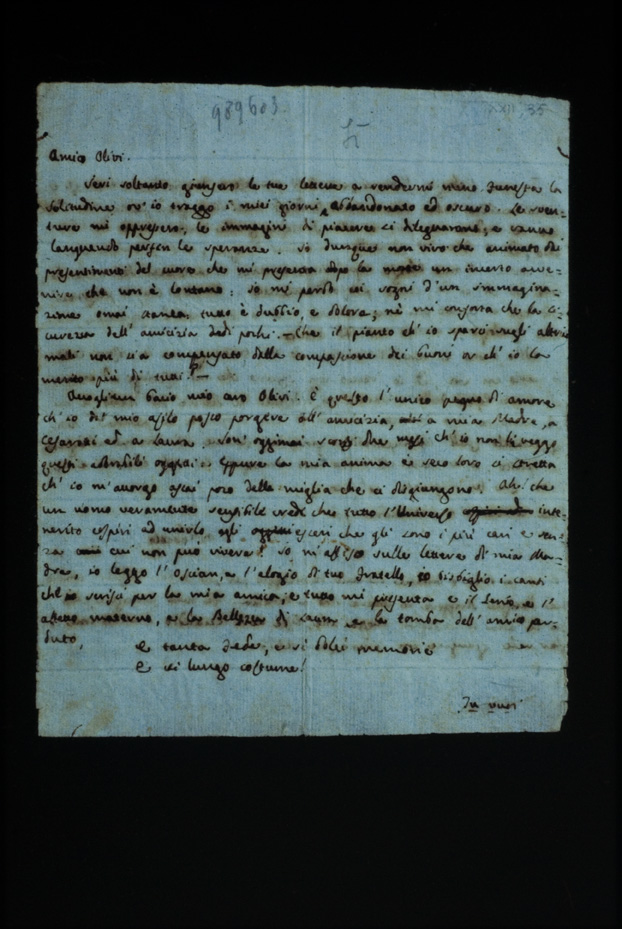 989603
XXII, 35
Amico Olivi.
Jeri soltanto giunsero le tue lettere a rendermi meno funesta la
solitudine ov' io traggo i miei giorni, abbandonato ed oscuro. Le sven-
ture mi oppressero; le immagini di piacere si dileguarono; e vanno
languendo persin le speranze. Io dunque non vivo che animato da
presentimenti del cuore che mi presenta dopo la morte un incerto avve-
nire che non è lontano: io mi perdo coi sogni d'un immagina-
zione omai stanca; tutto è dubbio, e dolore; nè mi conforta che la si-
curezza dell' amicizia dei pochi. — Che il pianto ch' io sparsi sugli altrui
mali non sia compensato dalla compassione dei buoni or ch' io la
merito più di tutti? —
bacio mio caro Olivi. È questo l'unico pegno di amore
ch' io dal mio asilo posso porgere all' amicizia, a mia Madre, a
Cesarotti ed a Laura. Son' oggimai scorsi due mesi ch' io non li veggo
questi adorabili oggetti. Eppure la mia anima è seco loro sì stretta
ch' io m'accorgo assai poco delle miglia che ci disgiungono. Ah! che
un uomo veramente sensibile vede che tutto l'Universo inte-
nerito cospiri ad unirlo agli esseri che gli sono i più cari e sen-
za cui non può vivere! Io m'affiso sulle lettere di mia Ma-
dre, io leggo l'Ossian, e l'elogio di tuo fratello, io bisbiglio i canti
ch' io scrissi per la mia amica; e tutto mi presenta e il Genio, e l'
affetto materno, e la Bellezza di Laura e la tomba dell' amico per-
duto,
e tanta fede, e sì dolci memorie
e sì lungo costume!